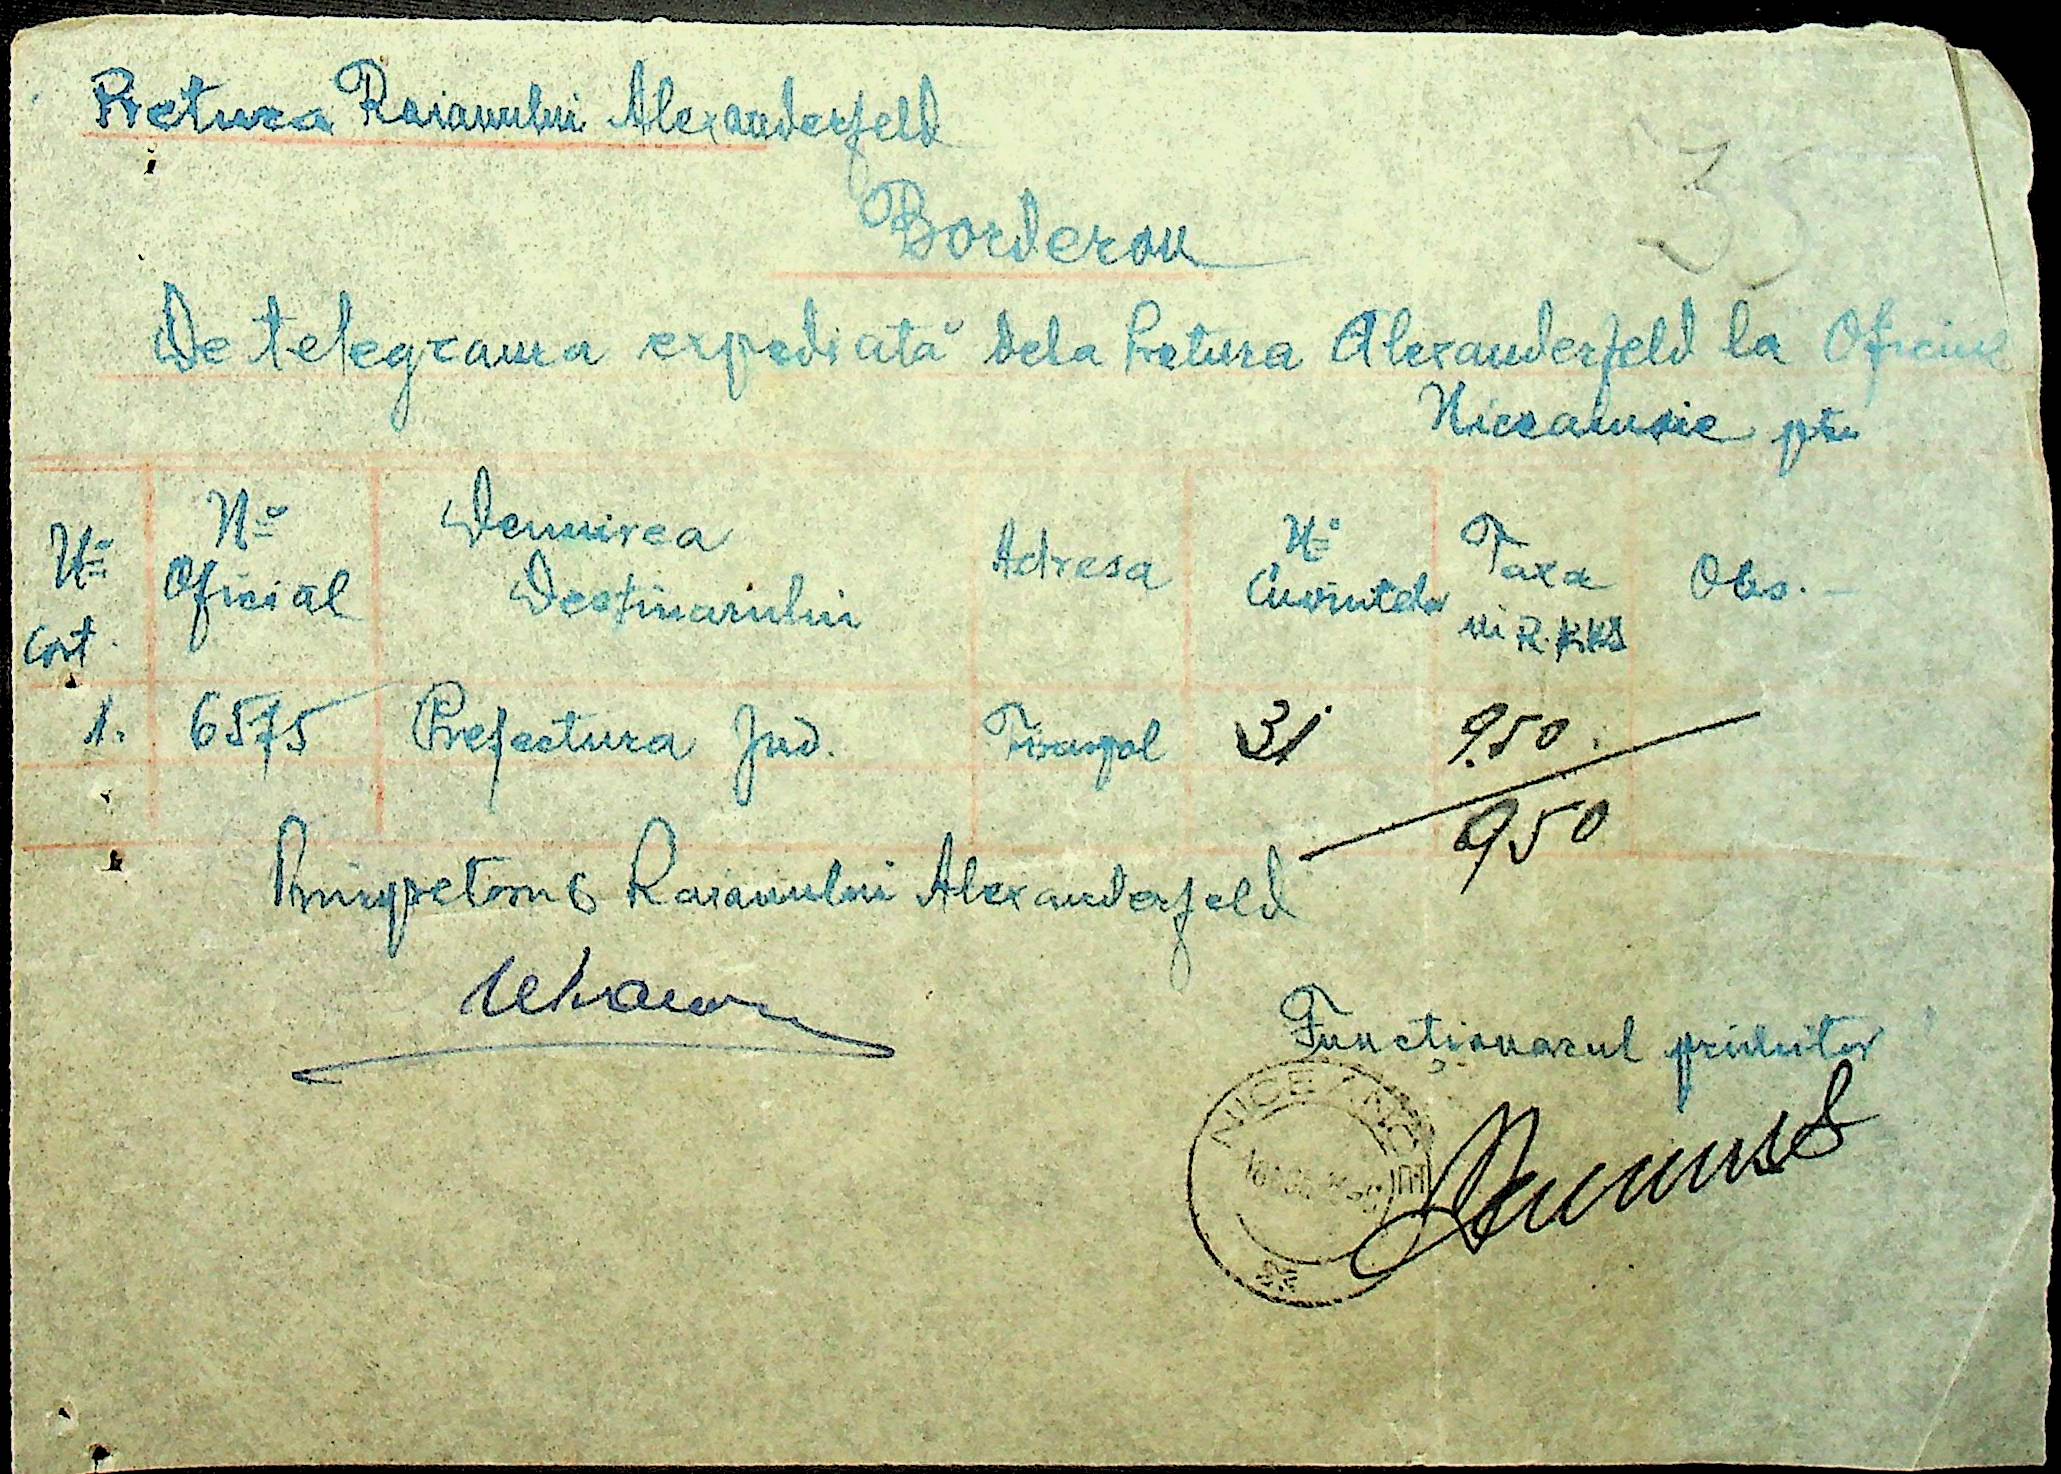 Pretura Raionului Alexanderfeld
35
Borderou
De telegrama expediată dela Pretura Alexanderfeld la Oficiul
ptr
Nº Cort.
Nº Oficial
Denumirea Destinarului
Adresa
Nº Cuvintelor
Taxa în R.KKS
Obs.
1. 6575 Prefectura Jud. Tiraspol 31 9.50
950
Primpretorul Raionului Alexanderfeld
Funcționarul primitor